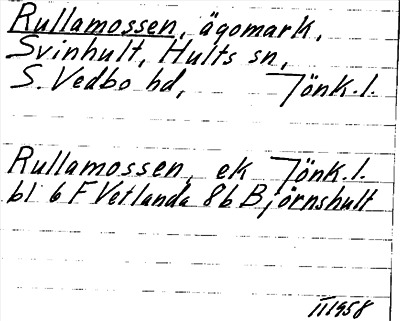 Rullamossen, ägomark,
Svinhult, Hults sn,
S. Vedbo hd, Jönk. l.
Rullamossen, ek Jönk. l.
bl 6 F Vetlanda 8 b Björnshult
III 1958